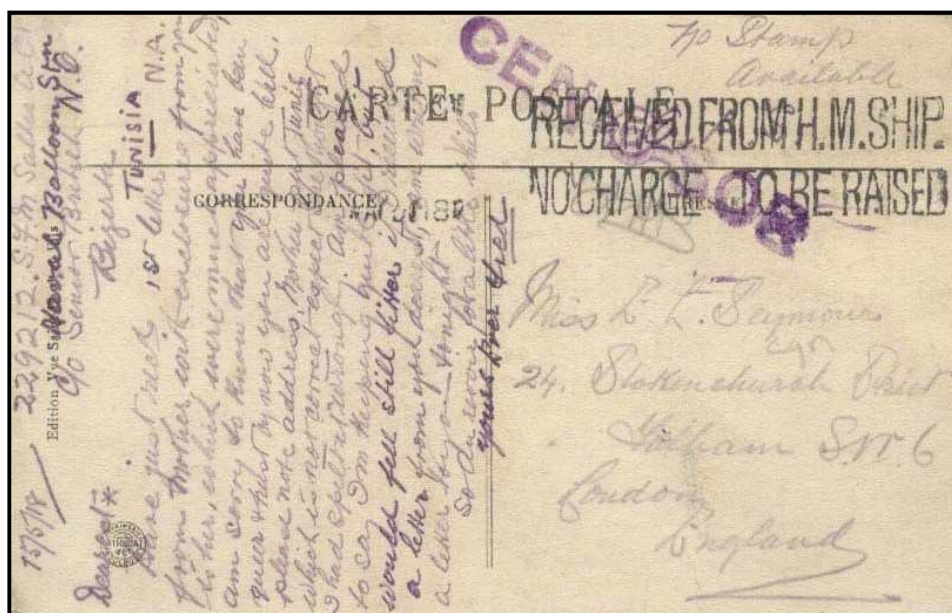 No Stamp
Available
CENSOR
CARTE POSTALE
RECEIVED FROM H.M. SHIP.
NO CHARGE TO BE RAISED
CORRESPONDANCE
Miss L. E. Seymour
24. Stokenchurch Street
Fulham S.W. 6
London
England
15/5/18
229212. S.F.M.
c/o Senior British N.O.
Balloon Stn
Bizerta
Tunisia N.A.
Dearest
Have just recd 1st letter
from Mother with enclosure from you
to her, which were much appreciated,
am sorry to know that you have been
queer & trust by now you are quite well.
please note address, Mother put Tunis
which is not correct
I had spelt it wrong. Am pleased
to say I'm keeping quite fit but
would feel still fitter if I received
a letter from you dearest, Am writing
a letter to you tonight
so au revoir for a little while
yours ever Fred
Edition